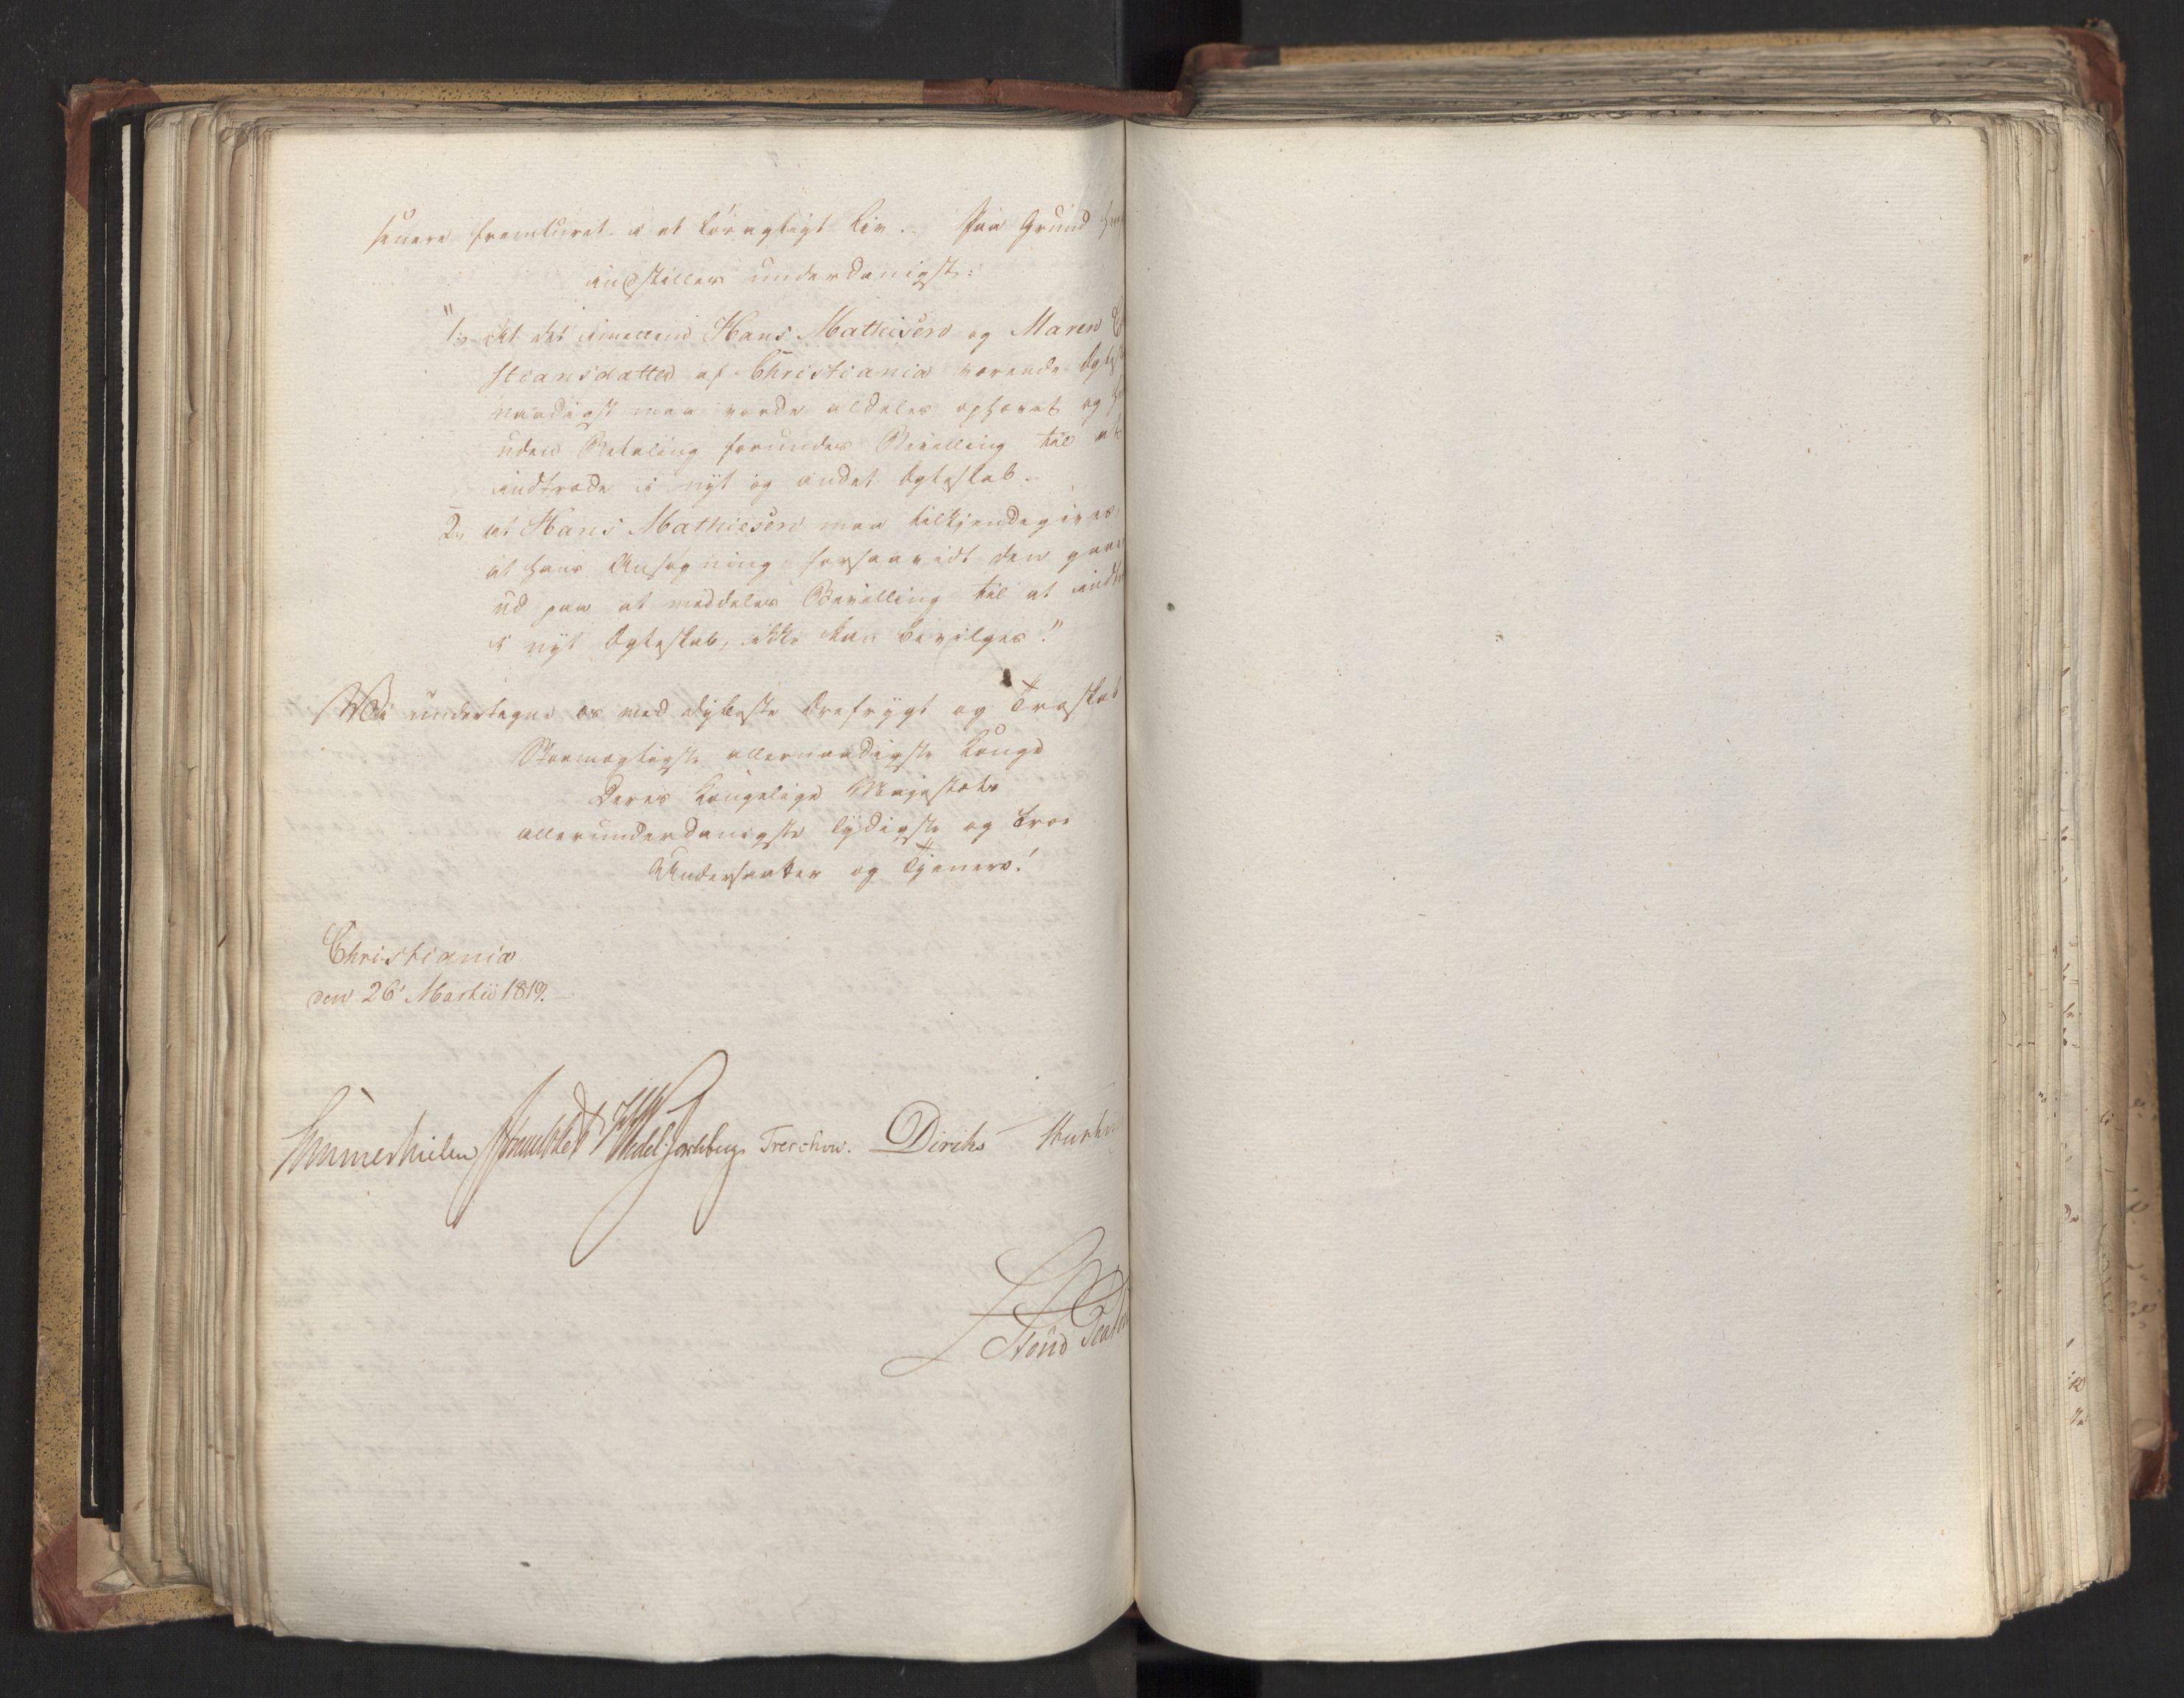 senere fremturet i et løsagtigt Liv. Paa Grund
indstilles underdanigst:
"1, At det imellem Hans Mathiesen og Maren
stiansdatter af Christiania værende
naadigst maa vorde aldeles ophævet og
uden Betaling forundes Bevilling til at
indtræde i nyt og andet Ægteskab.
2, at Hans Mathiesen maa tilkjendegives,
at hans Ansøgning forsaavidt den gaaer
ud paa at meddeles Bevilling til at
i nyt Ægteskab, ikke kan bevilges."
Vi undertegne os med dybeste Ærefrygt og Troskab
Stormægtigste allernaadigste Konge
Deres Kongelige Majestæts
allerunderdanigste lydigste og troe
Undersaatter og Tjenere!
Christiania
den 26' Martii 1819.
Sommerhielm Wedel Jarlsberg Treschow. Diriks